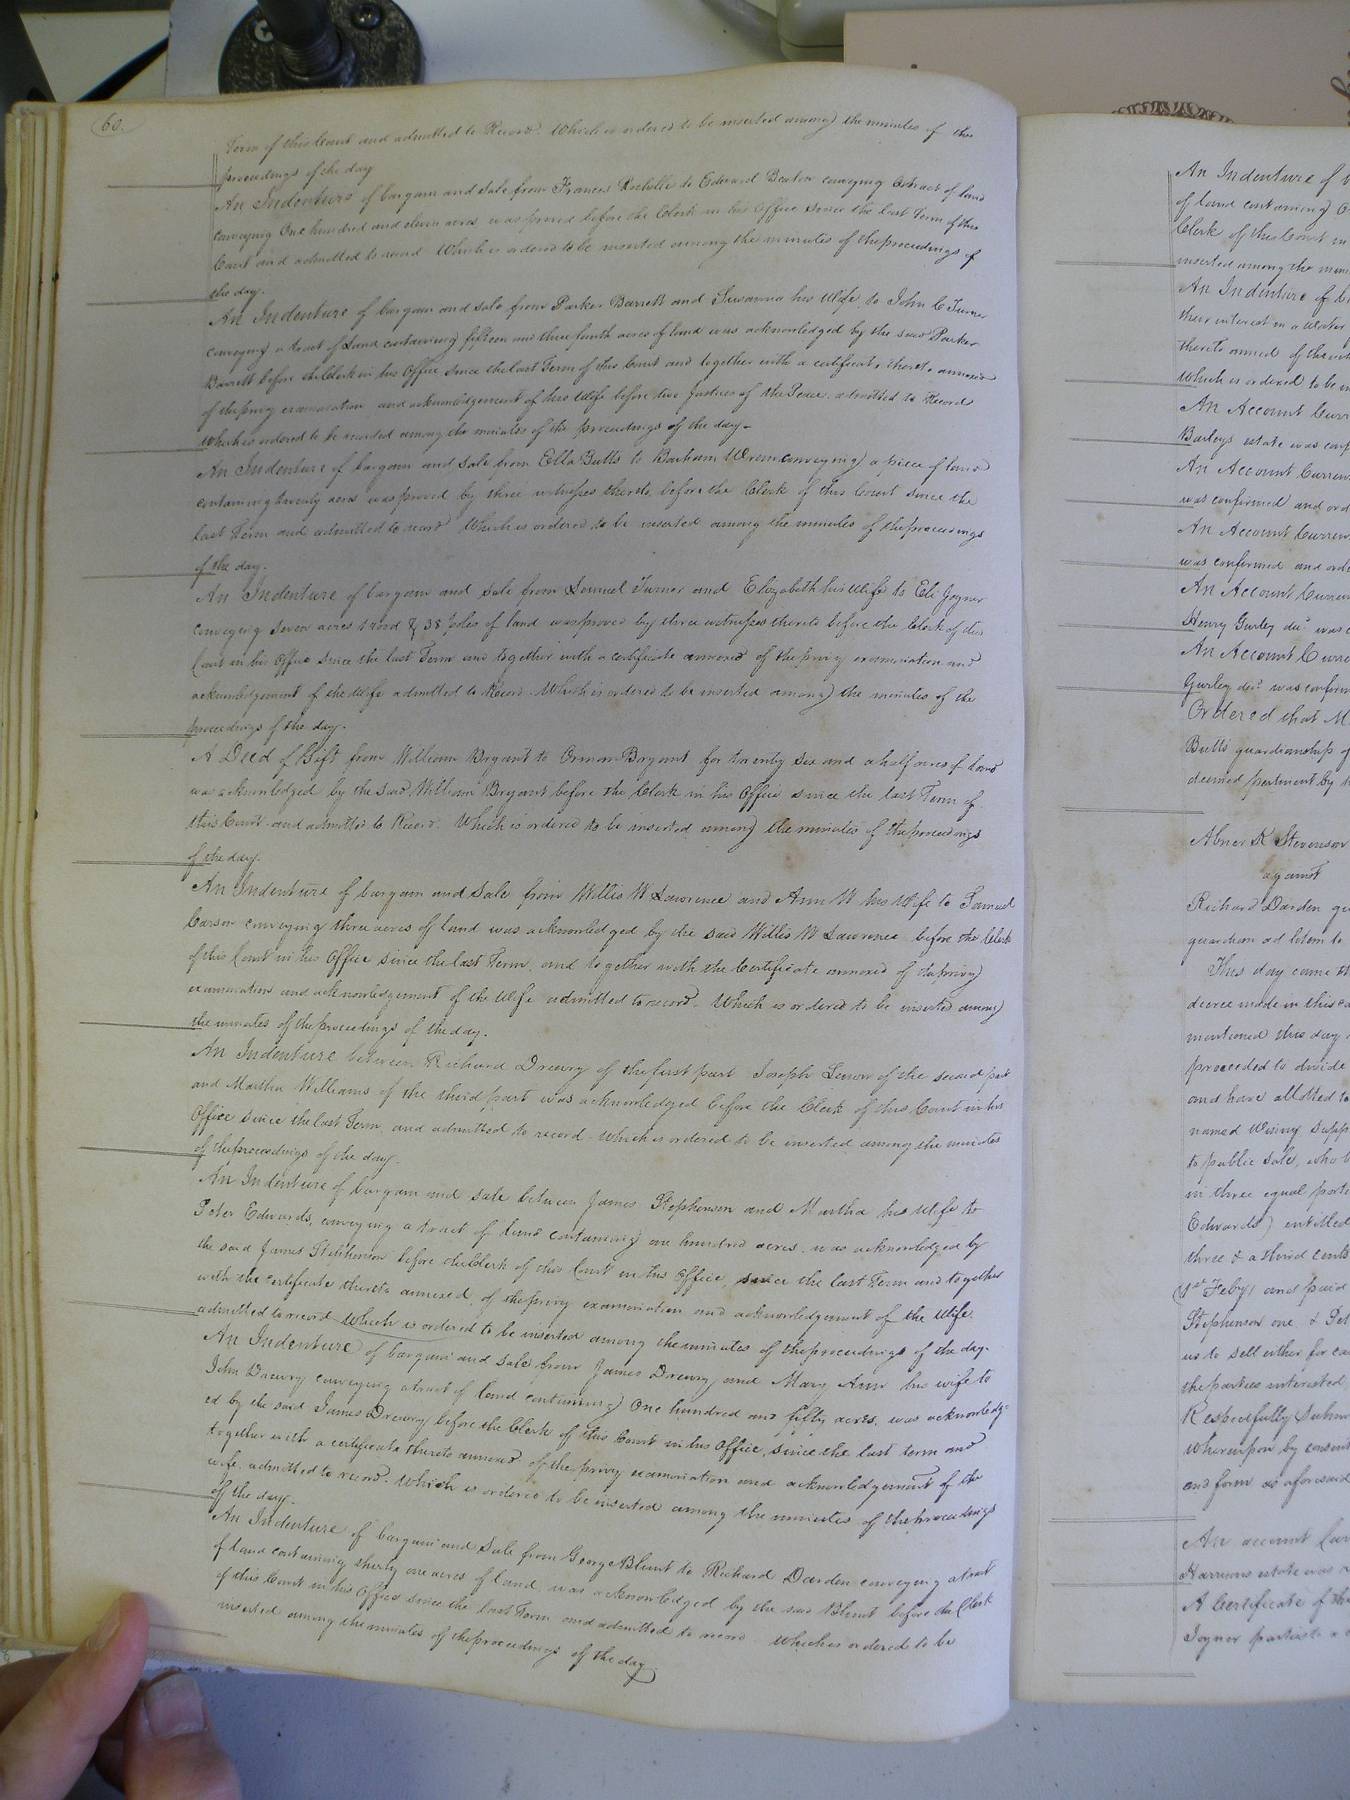 60.
Term of this Court and admitted to Record. Which is ordered to be inserted among the minutes of the
proceedings of the day
An Indenture of bargain and sale from Frances Rochelle to Edward Beaton conveying a tract of land
conveying One hundred and eleven acres was proved before the Clerk in his Office since the last Term of this
Court and admitted to record Which is ordered to be inserted among the minutes of the proceedings of
the day.
An Indenture of bargain and sale from Parker Barrett and Susanna his Wife to John C Turner
conveying a tract of Land containing fifteen and three fourth acres of land was acknowledged by the said Parker
Barrett before the Clerk in his Office since the last Term of this Court and together with a certificate thereto annexed
of the privy examination and acknowledgement of his Wife before two Justices of the Peace admitted to Record
which is ordered to be recorded among the minutes of the proceedings of the day.
An Indenture of bargain and sale from Ella Butts to Barham Wrenn conveying a piece of land
containing twenty acres was proved by three witnesses thereto before the Clerk of this Court since the
last Term and admitted to record Which is ordered to be inserted among the minutes of the proceedings
of the day.
An Indenture of bargain and sale from Lemuel Turner and Elizabeth his Wife to Eli Joyner
conveying seven acres 1 rood & 38 poles of land was proved by three witnesses thereto before the Clerk of this
Court in his Office since the last Term and together with a certificate annexed of the privy examination and
acknowledgement of the Wife admitted to Record. Which is ordered to be inserted among the minutes of the
proceedings of the day.
A Deed of Gift from William Bryant to Orman Bryant for twenty six and a half acres of land
was acknowledged by the said William Bryant before the Clerk in his Office since the last Term of
this Court and admitted to Record. Which is ordered to be inserted among the minutes of the proceedings
of the day.
An Indenture of bargain and sale from Willis W Lawrence and Ann W his Wife to Samuel
Carson conveying three acres of land was acknowledged by the said Willis W Lawrence before the Clerk
of this Court in his Office since the last Term, and together with the Certificate annexed of the privy
examination and acknowledgement of the Wife admitted to record. Which is ordered to be inserted among
the minutes of the proceedings of the day.
An Indenture between Richard Drewry of the first part Joseph of the second part
and Martha Williams of the third part was acknowledged before the Clerk of this Court in his
Office since the last Term and admitted to record. which is ordered to be inserted among the minutes
of the proceedings of the day.
An Indenture of bargain and sale between James Stephenson and Martha his Wife to
Peter Edwards, conveying a tract of land containing one hundred acres, was acknowledged by
the said James Stephenson before the Clerk of this Court in his Office, since the last Term and together
with the certificate thereto annexed, of the privy examination and acknowledgement of the Wife.
admitted to record which is ordered to be inserted among the minutes of the proceedings of the day.
An Indenture of bargain and sale from James Drewry and Mary Ann his wife to
John Drewry conveying a tract of land containing One hundred and fifty acres, was acknowledg-
ed by the said James Drewry before the Clerk of this Court in his Office, since the last term and
together with a certificate thereto annexed of the privy examination and acknowledgement of the
wife, admitted to record. Which is ordered to be inserted among the minutes of the proceedings
of the day.
An Indenture of bargain and sale from George Blunt to Richard Darden conveying a tract
of land containing thirty one acres of land was acknowledged by the said Blunt before the Clerk
of this Court in his Office since the last Term and admitted to record. which is ordered to be
inserted among the minutes of the proceedings of the day
An Indenture of
of land containing
Clerk of this Court in
inserted among the min
An Indenture of b
their interest in a
thereto annexed of the
Which is ordered to be
An Account Curr
estate was conf
An Account Curren
was confirmed and ord
An Account Curren
was confirmed and orde
An Account Curren
Henry Gurley decd was
An Account Curre
Gurley decd was confirm
Ordered that M
Butts guardianship of
deemed pertinent by
Abner K Stevenson
against
Richard Darden gu
guardian ad litem to
This day came th
decree made in this ca
mentioned this day
proceeded to divide
and have allotted to
named
to public sale, who
in three equal parts
Edwards) entitled
three & a third cents
1st Feby, and paid
Stephenson one & Pet
us to sell either for ca
the parties interested
Respectfully Subm
whereupon by consent
and form as aforesaid
An account Curr
Harrisons estate was
A Certificate of the
Joyner